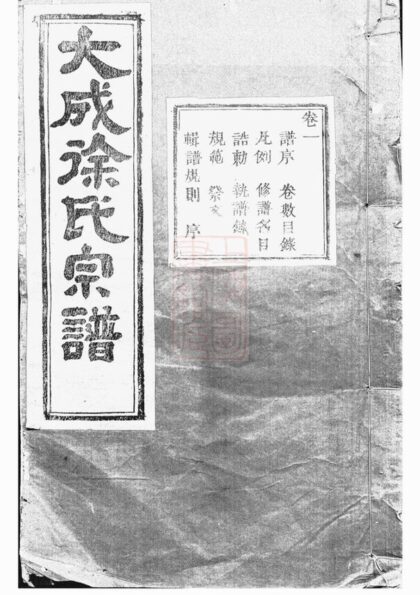 大成徐氏宗譜
卷一
譜序 卷數目錄
凡例 修譜名目
誥勅 執譜錄
規範 祭文
輯譜規則 序